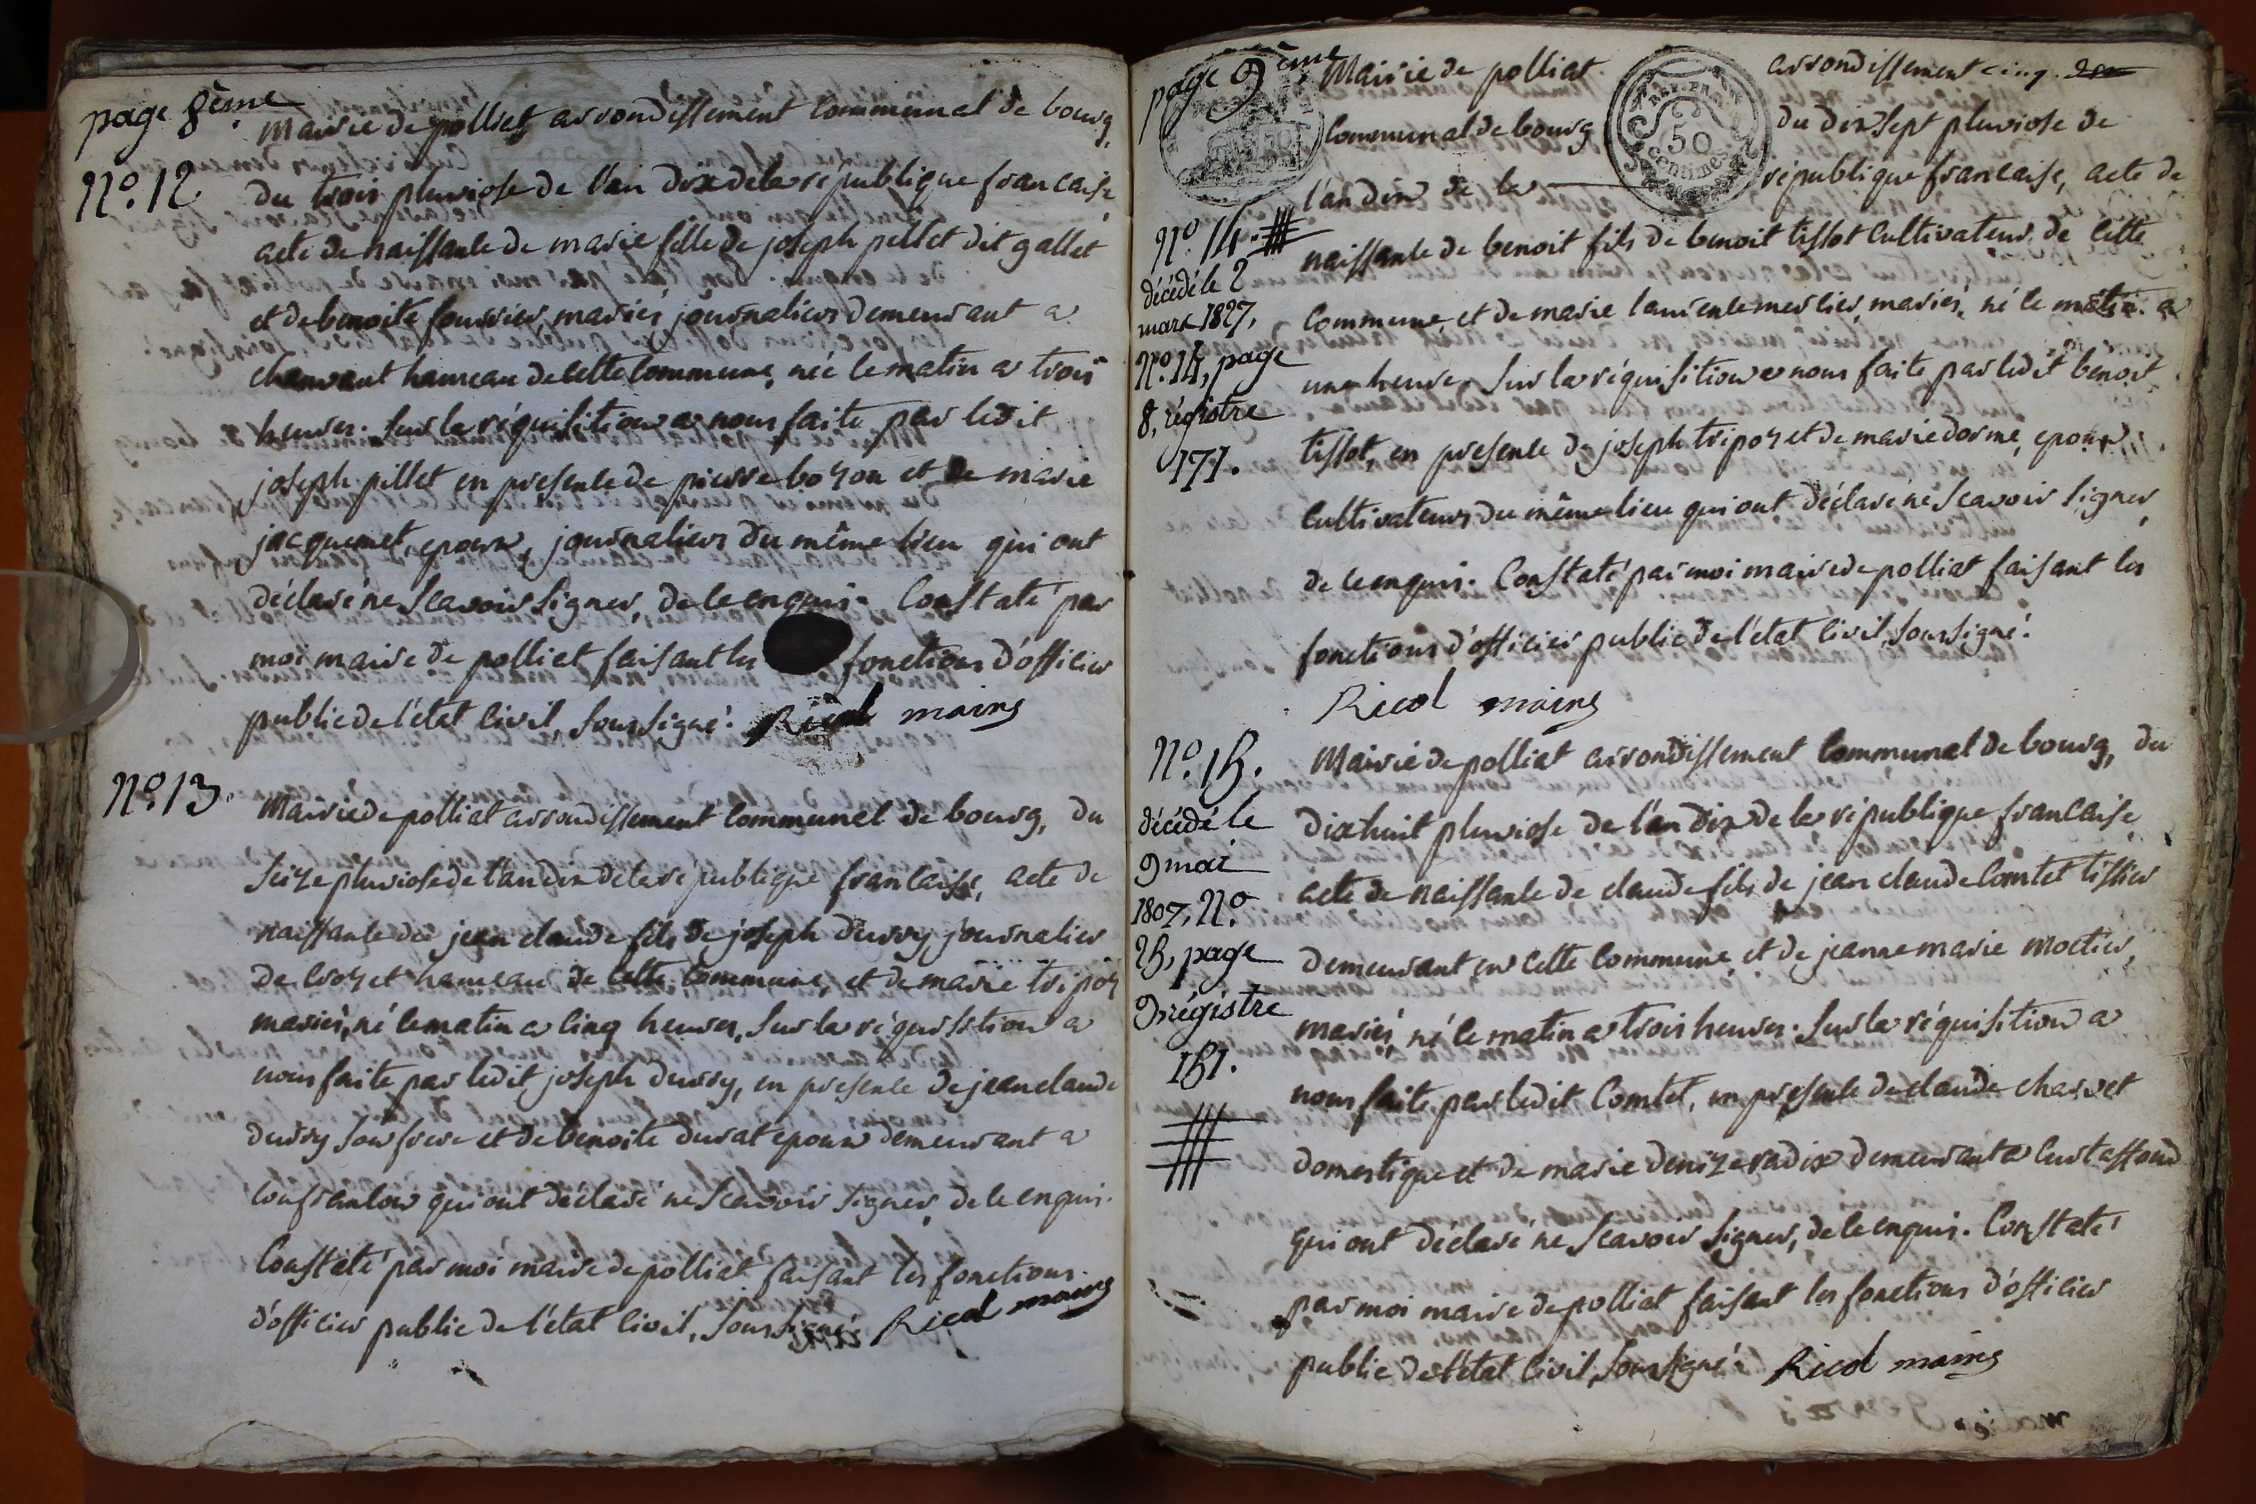 page 8ème
Mairie de polliat arrondissement communal de bourg,
N.º 12.
du trois pluviose de l'an dix de la république francaise,
acte de naissance de marie fille de joseph pillet dit gallet
et de benoite fourrier, mariés, journaliers demeurant a
hameau de cette commune, née le matin a trois
heures. Sur la réquisition a nous faite par ledit
joseph pillet en presence de pierre bozon et de marie
jacquemet, epoux, journaliers du même lieu qui ont
déclaré ne scavoir signer, de ce enquis. Constaté par
moi maire de polliat faisant les fonctions d'officier
public de l'état civil, soussigné. Ricol maire
N.º 13.
Mairie de polliat arrondissement communal de bourg, du
seize pluviose de l'an dix de la république francaise, acte de
naissance de jean claude fils de joseph durry journalier
de crozet hameau de cette commune, et de marie tripoz
mariés, né le matin a cinq heures. Sur la réquisition a
nous faite par ledit joseph durry, en presence de jean claude
durry son frere et de benoite durat epoux demeurant a
confranson qui ont déclaré ne scavoir signer, de ce enquis.
Constaté par moi maire de polliat faisant les fonctions
d'officier public de l'état civil, soussigné. Ricol maire
page 9ème
Mairie de polliat arrondissement
communal de bourg du dix sept pluviose de
l'an dix de la république francaise, acte de
N.º 14.
décédé le 2
mars 1827,
N.º 14, page
8, régistre
171.
naissance de benoit fils de benoit tissot cultivateur de cette
commune, et de marie laurence mercier, mariés, né le matin a
une heure. Sur la réquisition a nous faite par ledit benoit
tissot, en presence de joseph tripoz et de marie dorme, epoux
cultivateurs du même lieu qui ont déclaré ne scavoir signer,
de ce enquis. Constaté par moi maire de polliat faisant les
fonctions d'officier public de l'état civil, soussigné.
Ricol maire
N.º 15.
décédé le
9 mai
1807, N.º
25, page
9 régistre
151.
Mairie de polliat arrondissement communal de bourg, du
dix huit pluviose de l'an dix de la république francaise,
acte de naissance de claude fils de jean claude Comtet tissier
demeurant en cette commune, et de jeanne marie moctier,
mariés, né le matin a trois heures. Sur la réquisition a
nous faite par ledit Comtet, en presence de claude charvet
domestique et de marie denize radix demeurant a curtaffond
qui ont déclaré ne scavoir signer, de ce enquis. Constaté
par moi maire de polliat faisant les fonctions d'officier
public de l'état civil, soussigné. Ricol maire
REP. FRA.
50
centimes